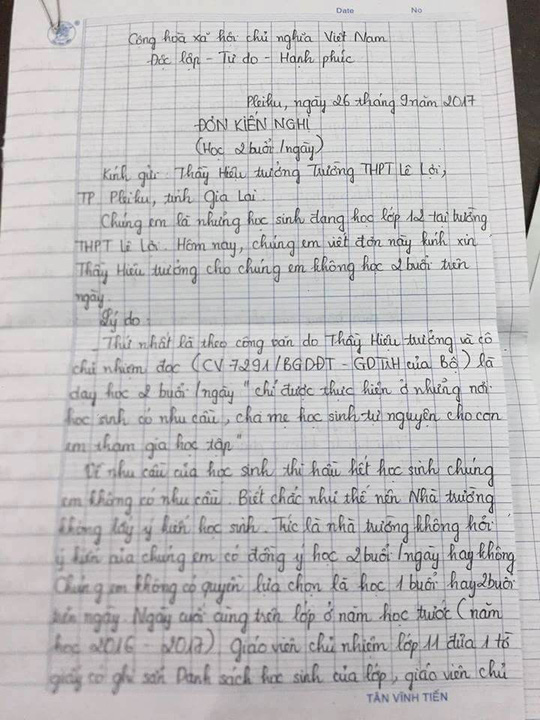 Date No
Cộng hoà xã hội chủ nghĩa Việt Nam
Độc lập - Tự do - Hạnh phúc
Pleiku, ngày 26 tháng 9 năm 2017
ĐƠN KIẾN NGHỊ
(Học 2 buổi/ngày)
Kính gửi: Thầy Hiệu trưởng Trường THPT Lê Lợi,
TP Pleiku, tỉnh Gia Lai.
Chúng em là những học sinh đang học lớp 12 tại trường
THPT Lê Lợi. Hôm nay, chúng em viết đơn này kính xin
Thầy Hiệu trưởng cho chúng em không học 2 buổi trên
ngày.
Lý do:
- Thứ nhất là theo công văn do Thầy Hiệu trưởng và cô
chủ nhiệm đọc (CV 7291/BGDĐT - GDTrH của Bộ) là
dạy học 2 buổi/ngày "chỉ được thực hiện ở những nơi
học sinh có nhu cầu, cha mẹ học sinh tự nguyện cho con
em tham gia học tập"
Về nhu cầu của học sinh thì hầu hết học sinh chúng
em không có nhu cầu. Biết chắc như thế nên Nhà trường
không lấy ý kiến học sinh. Tức là nhà trường không hỏi
ý kiến của chúng em có đồng ý học 2 buổi/ngày hay không
Chúng em không có quyền lựa chọn là học 1 buổi hay 2 buổi
trên ngày. Ngày cuối cùng trên lớp ở năm học trước (năm
học 2016 - 2017) giáo viên chủ nhiệm lớp 11 đưa 1 tờ
giấy có ghi sẵn Danh sách học sinh của lớp, giáo viên chủ
TÂN VĨNH TIẾN